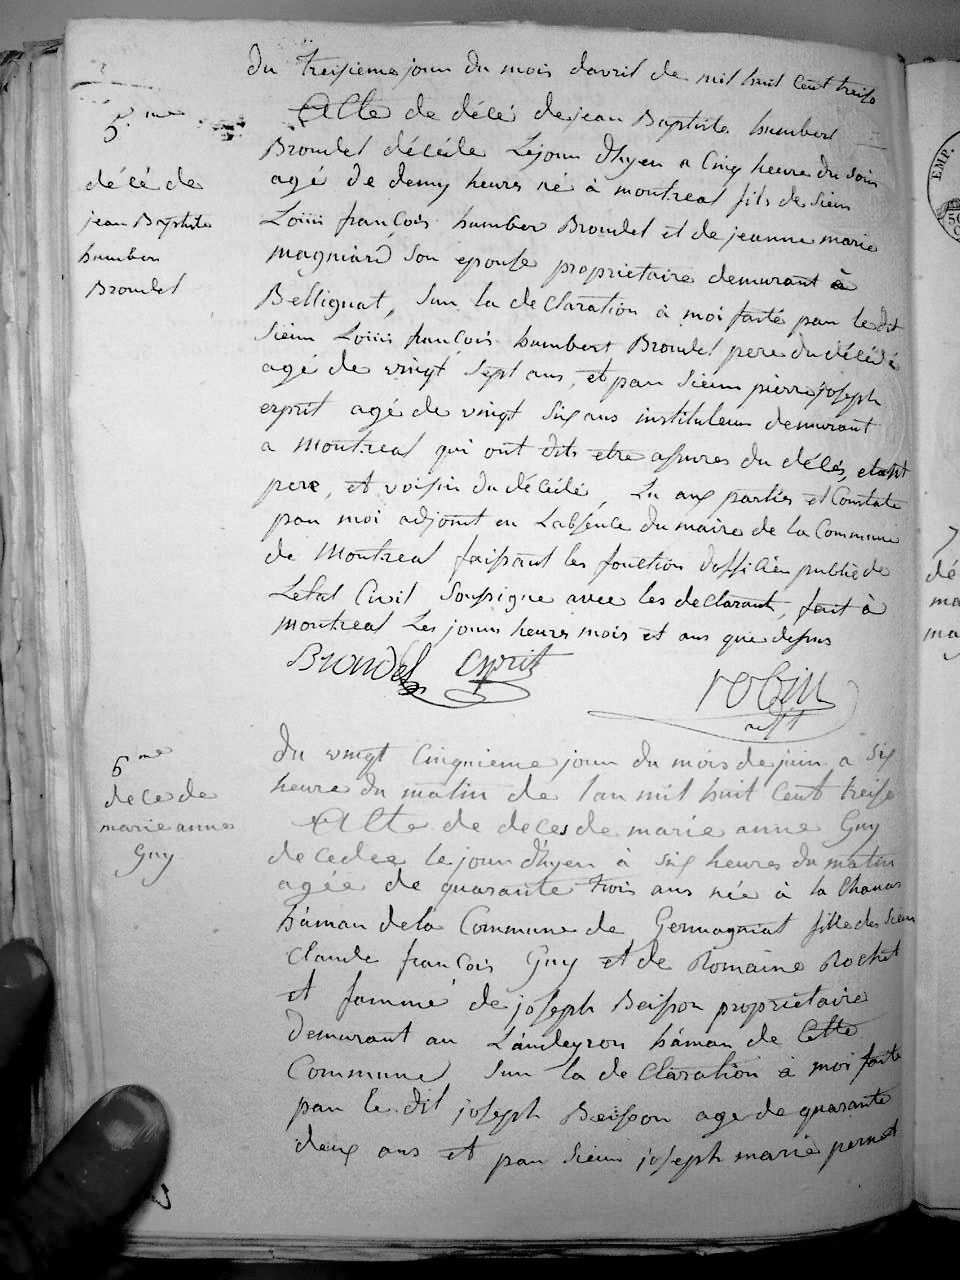 du treisieme jour du mois davril de mil huit cent treise
5.me
décé de
jean Baptiste
humbert
Brondel
Acte de décé de jean Baptiste humbert
Brondel décéde Le jour d'hyer a Cinq heure du soir
agé de demy heures né à montreal fils de Sieur
Loüii francois humber Brondel et de jeanne marie
magniard Son epouse proprietaire demeurant à
Bellignat, Sur la declaration à moi faité par le dit
Sieur Loüii francois humbert Brondel pere du décédé
agé de vingt Sept ans, et par Sieur pierre joseph
esprit agé de vingt Six ans instituteur demeurant
a Montreal qui ont dits etre assures du décés, etant
pere, et voisin du décédé, Lu aux parties et Constaté
par moi adjoint en Labsence du maire de la Commune
de Montreal faisant les fonction dofficier public de
Letat Civil Soussigne avec les declarant, fait à
montreal Les jour heures mois et ans que dessus
Brondel esprit
robin
adjt
6me
decede
marie anne
Guy
du vingt Cinquieme jour du mois de juin à Six
heure du matin de lan mil huit Cent treise
Acte de deces de marie anne Guy
decedee le jour d'hyer à Six heures du matin
agée de quarante trois ans née à la
háman dela Commune de Germagniat fille des Sieur
Claude francois Guy et de Romaine Rochet
et famme de joseph Beisson proprietaire
demeurant au Landeyron háman de Cette
Commune Sur la declaration à moi faite
par le dit joseph Beisson age de quarante
deux ans et par Sieur joseph marie pernet
EMP.
50
dé
ma
ma